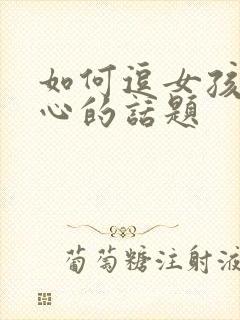 如何逗女孩
心的話題
葡萄糖注射液